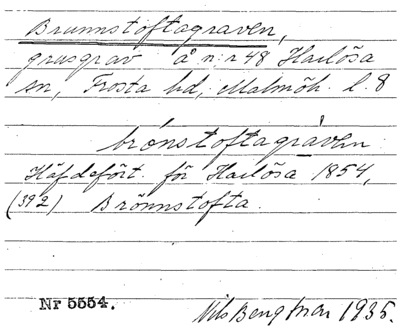 Brunnstoftagraven,
grusgrav å n:r 48 Harlösa
sn, Frosta hd, Malmöh. l. 8
brónstoftagràven
Häfdefört. för Harlösa 1854,
(392) Brönnstofta.
Nr 5554.
Nils Bengtsson 1935.